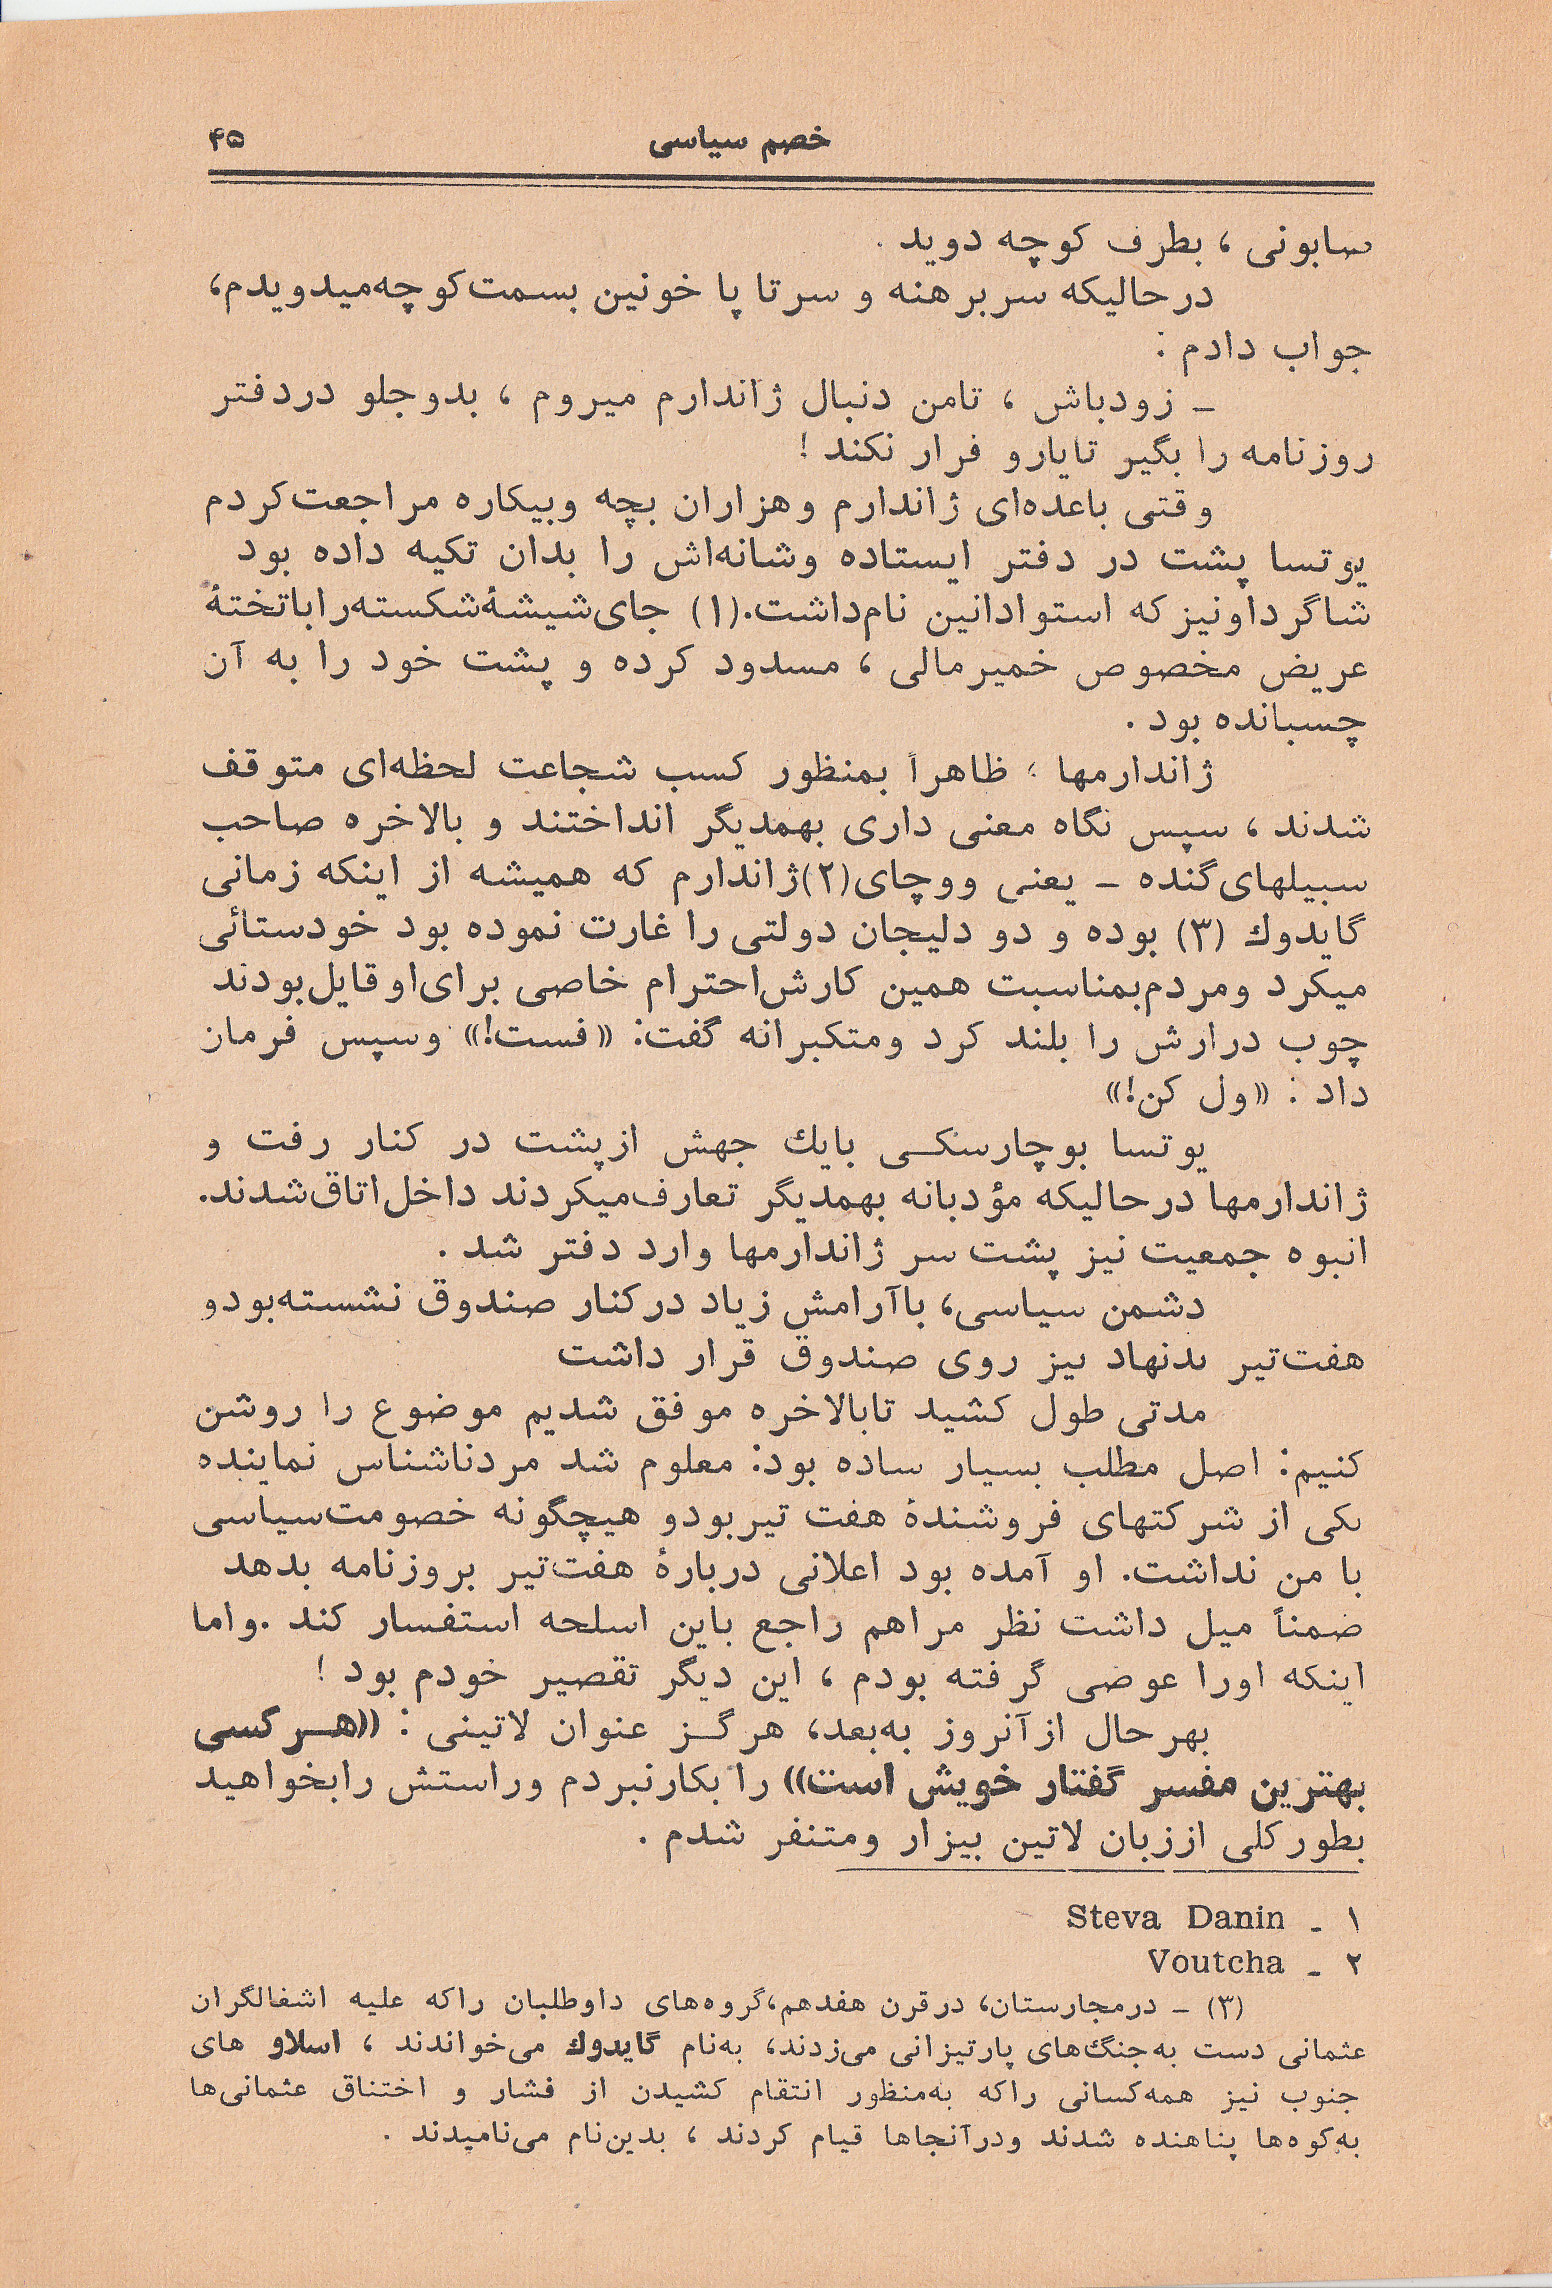 خصم سیاسی ۴۵
صابونی ، بطرف کوچه دوید .
درحالیکه سربرهنه و سرتا پا خونین بسمت‌کوچه‌میدویدم،
جواب دادم :
ـ زودباش ، تامن دنبال ژاندارم میروم ، بدوجلو دردفتر
روزنامه را بگیر تایارو فرار نکند !
وقتی باعده‌ای ژاندارم وهزاران بچه وبیکاره مراجعت‌کردم
یوتسا پشت در دفتر ایستاده وشانه‌اش را بدان تکیه داده بود
شاگرداونیزکه استوادانین نام‌داشت.(۱) جای‌شیشهٔ‌شکسته‌راباتختهٔ
عریض مخصوص خمیرمالی ، مسدود کرده و پشت خود را به آن
چسبانده بود .
ژاندارمها ، ظاهراً بمنظور کسب شجاعت لحظه‌ای متوقف
شدند ، سپس نگاه معنی داری بهمدیگر انداختند و بالاخره صاحب
سبیلهای‌گنده ـ یعنی ووچای(۲)ژاندارم که همیشه از اینکه زمانی
گایدوك (۳) بوده و دو دلیجان دولتی را غارت نموده بود خودستائی
میکرد ومردم‌بمناسبت همین کارش‌احترام خاصی برای‌اوقایل‌بودند
چوب درارش را بلند کرد ومتکبرانه گفت: «فست!» وسپس فرمان
داد : «ول کن!»
یوتسا بوچارسکی بایك جهش ازپشت در کنار رفت و
ژاندارمها درحالیکه مؤدبانه بهمدیگر تعارف‌میکردند داخل‌اتاق‌شدند.
انبوه جمعیت نیز پشت سر ژاندارمها وارد دفتر شد .
دشمن سیاسی، باآرامش زیاد درکنار صندوق نشسته‌بودو
هفت‌تیر بدنهاد نیز روی صندوق قرار داشت
مدتی طول کشید تابالاخره موفق شدیم موضوع را روشن
کنیم: اصل مطلب بسیار ساده بود: معلوم شد مردناشناس نماینده
یکی از شرکتهای فروشندهٔ هفت تیربودو هیچگونه خصومت‌سیاسی
با من نداشت. او آمده بود اعلانی دربارهٔ هفت‌تیر بروزنامه بدهد
ضمناً میل داشت نظر مراهم راجع باین اسلحه استفسار کند .واما
اینکه اورا عوضی گرفته بودم ، این دیگر تقصیر خودم بود !
بهرحال ازآنروز به‌بعد، هرگز عنوان لاتینی : «هرکسی
بهترین مفسر گفتار خویش است» را بکارنبردم وراستش رابخواهید
بطورکلی اززبان لاتین بیزار ومتنفر شدم .
۱ ـ Steva Danin
۲ ـ Voutcha
(۳) ـ درمجارستان، درقرن هفدهم،گروه‌های داوطلبان راکه علیه اشغالگران
عثمانی دست به‌جنگ‌های پارتیزانی می‌زدند، به‌نام گایدوك می‌خواندند ، اسلاو های
جنوب نیز همه‌کسانی راکه به‌منظور انتقام کشیدن از فشار و اختناق عثمانی‌ها
به‌کوه‌ها پناهنده شدند ودرآنجاها قیام کردند ، بدین‌نام می‌نامیدند .